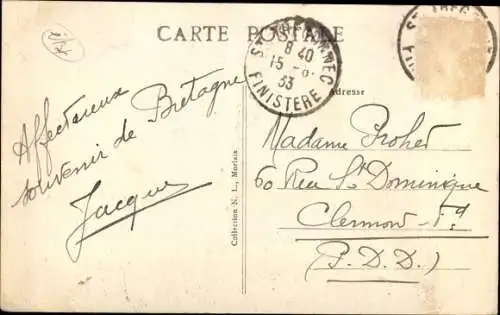 CARTE POSTALE
8 40
15 - 8
33
FINISTERE
Affectueux
souvenir de Bretagne
Jacques
Collection N. L., Morlaix
Adresse
Madame Prohet
60 Rue St Dominique
Clermont-Fd
(P.D.D.)